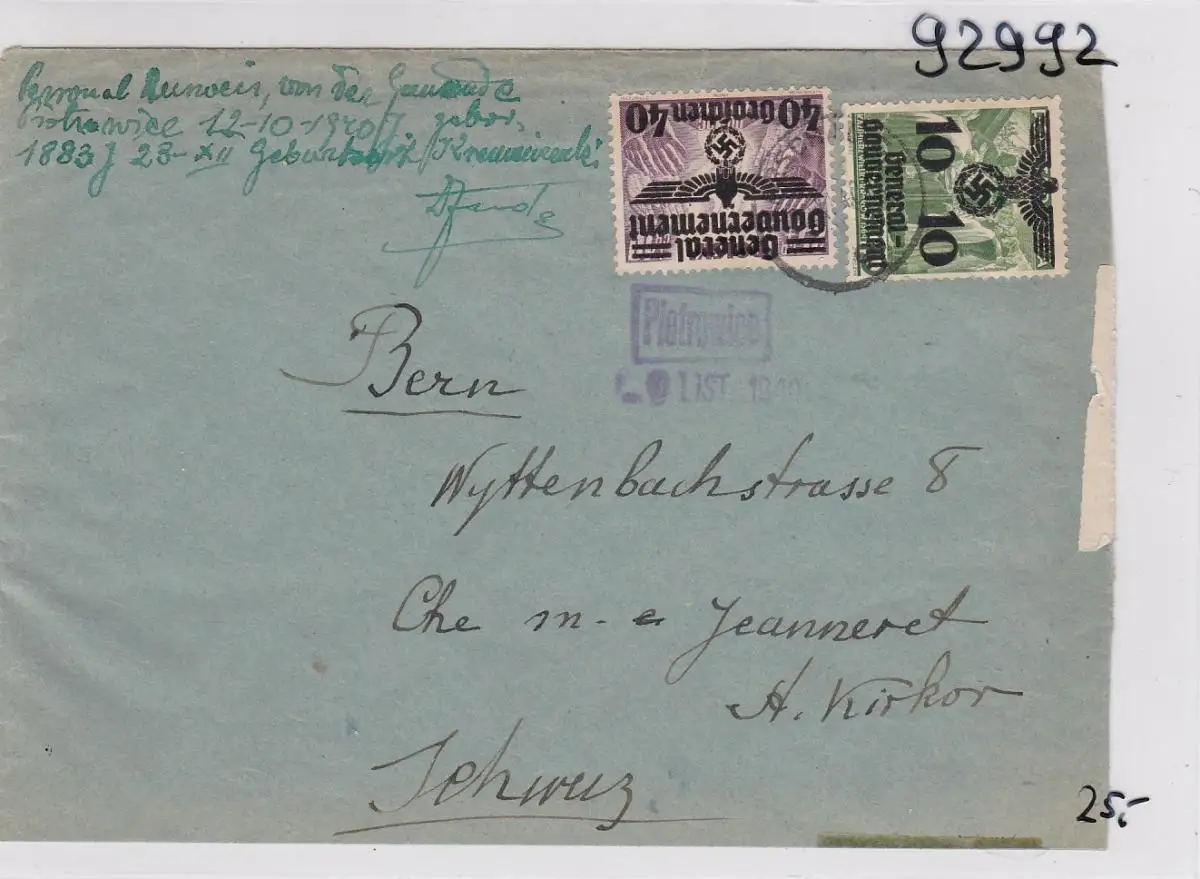 92992
Personal Ausweis, von der Gemeinde
Piotrowice 12-10-1940 J gebor.
1883 J 23-XII Geburtsort
40 Groschen 40
General
Gouvernement
10 10
General-
Gouvernement
Pietrowice
LIST. 1940
Bern
Wyttenbachstrasse 8
Che m-e Jeanneret
H. Kirkor
Schweiz
25.-